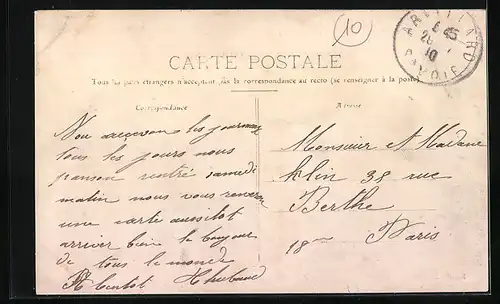 10
ARVILLARD
6 45
26
10
SAVOIE
CARTE POSTALE
Tous les pays étrangers n'acceptent pas la correspondance au recto (se renseigner à la poste)
Correspondance
Adresse
Nou recevon les journaux
tous les jours nous
panson rentré samedi
matin nous vous reveron
une carte aussitot
arriver bien le bonjour
de tous le monde
A bientot
Monsieur et Madame
Klin 38 rue
Berthe
18me Paris